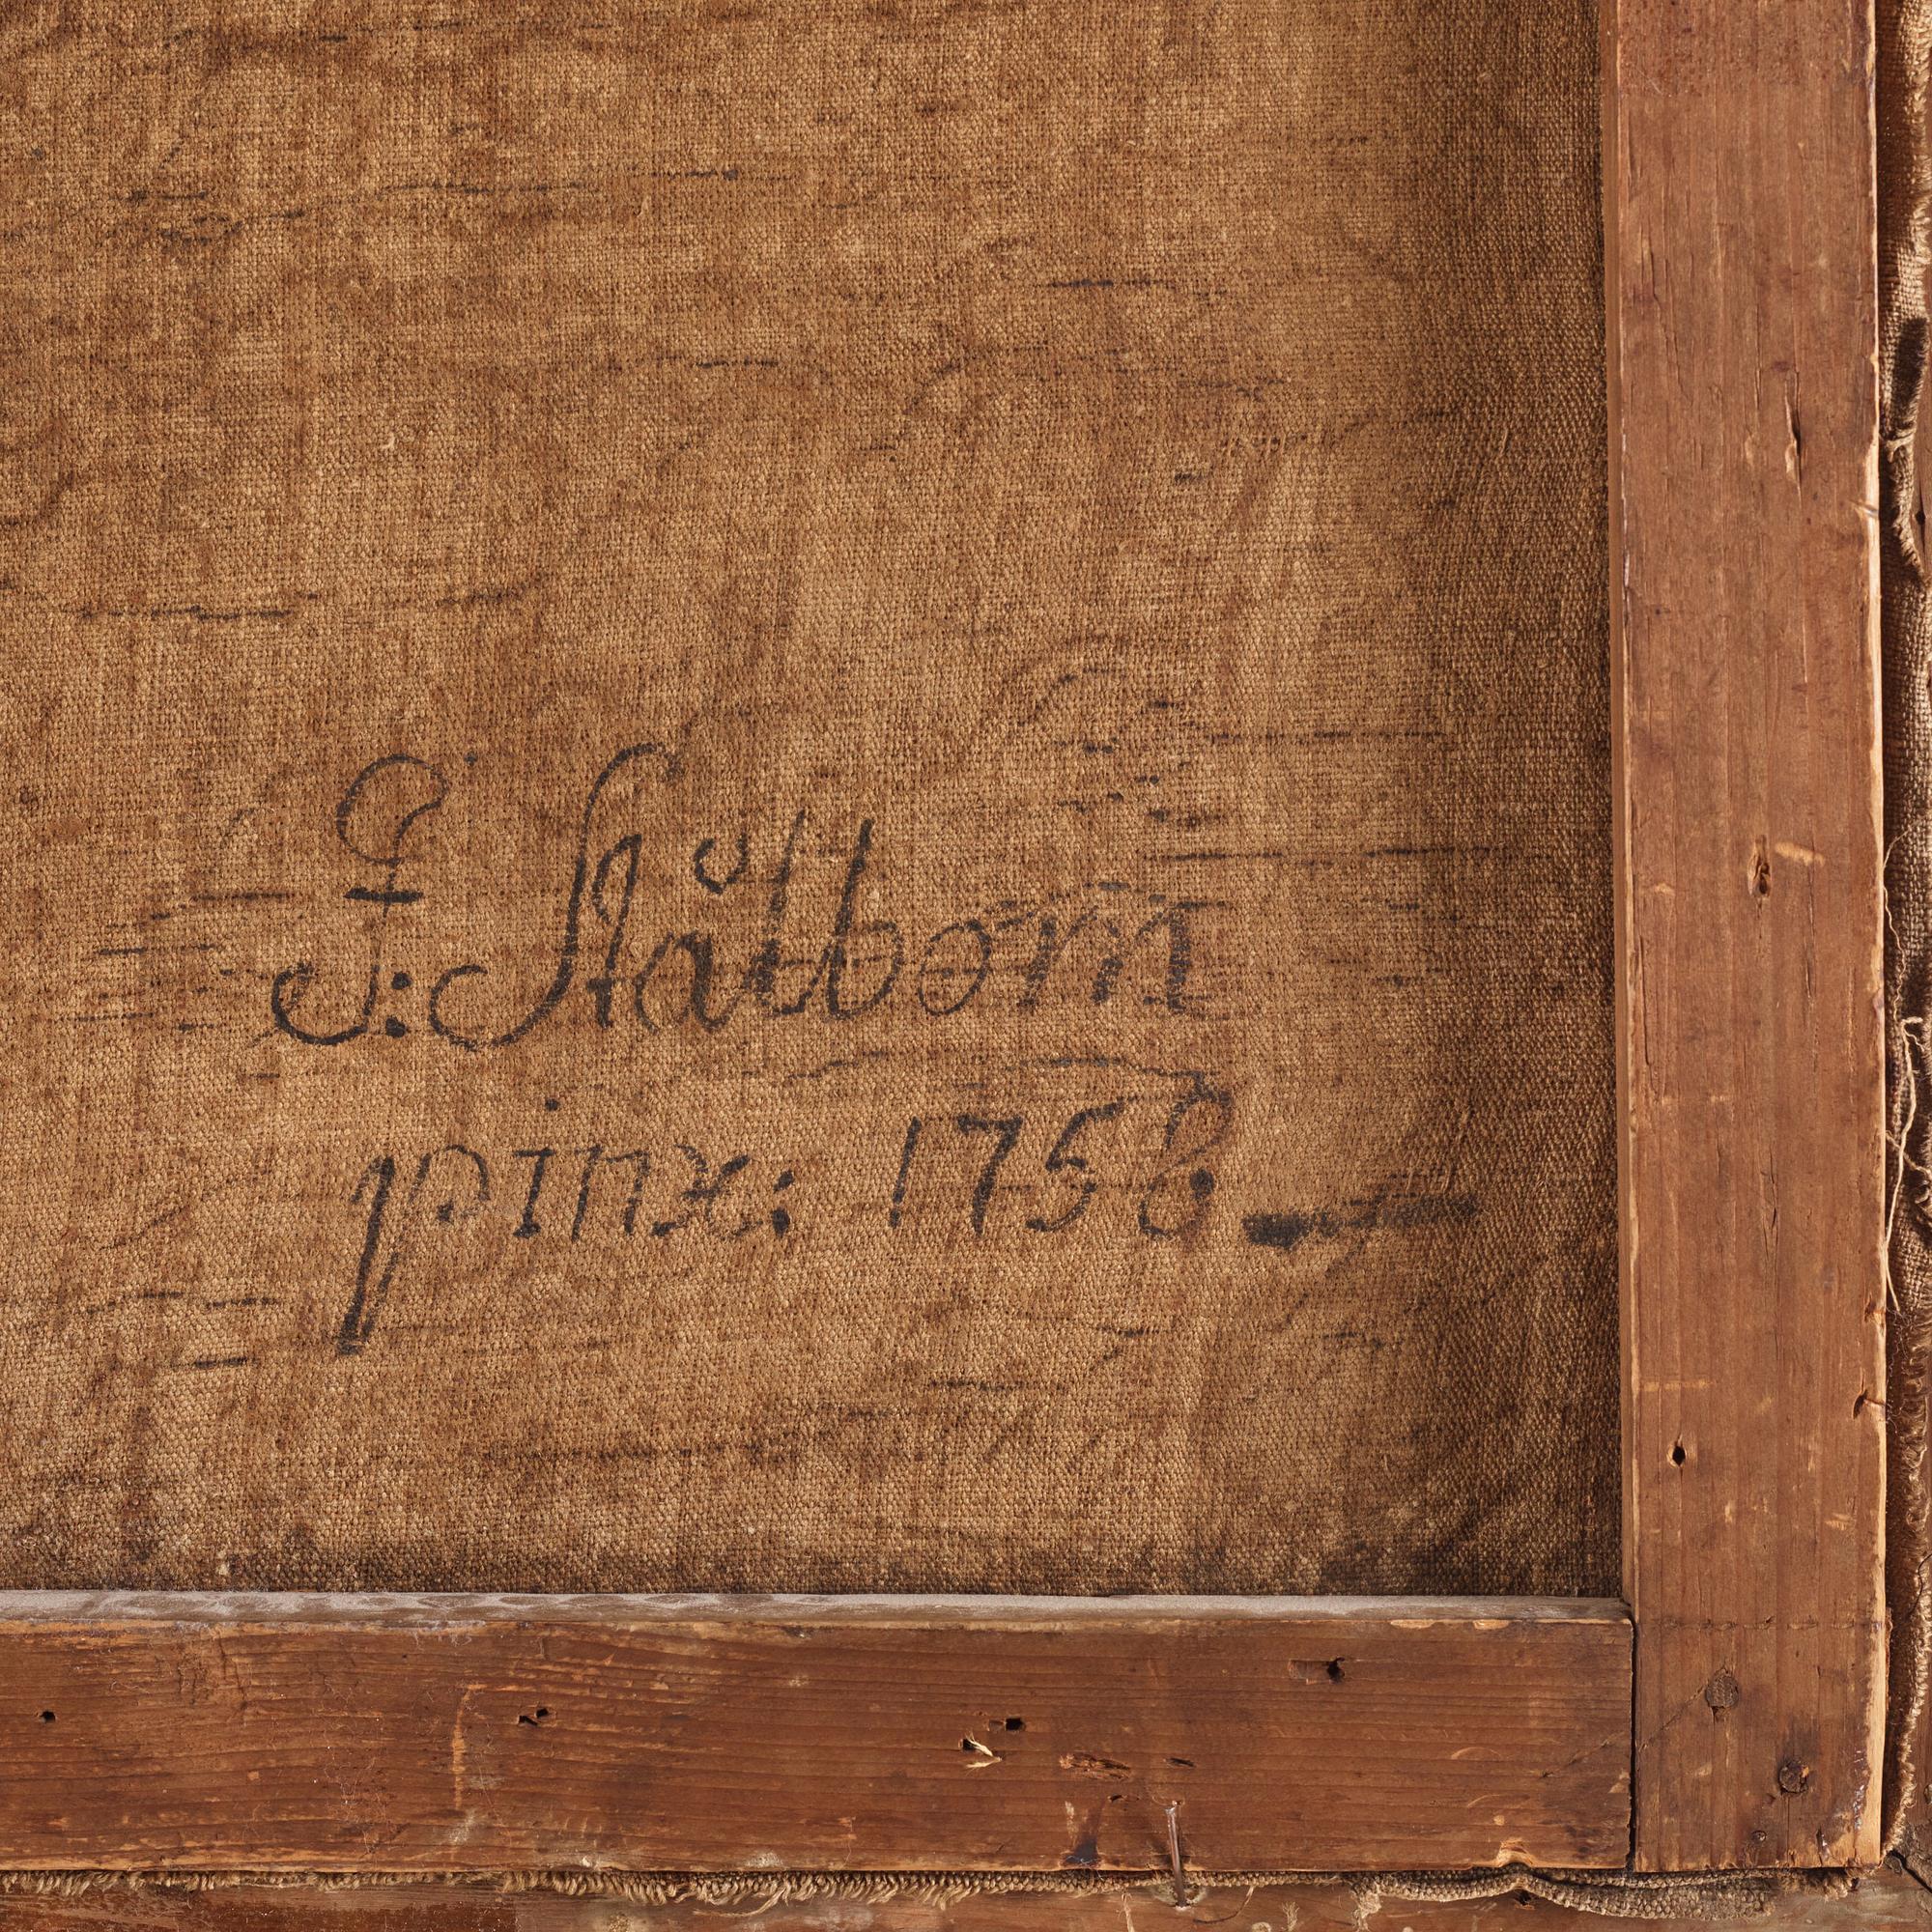 J: Stålbom
pinx: 1758